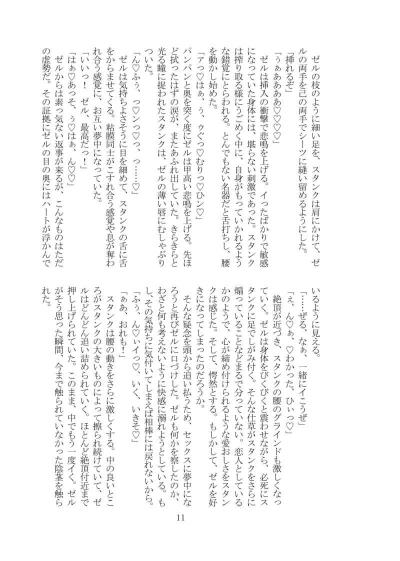 ゼルの枝のように細い足を、スタンクは肩にかけて、ゼ
ルの両手を己の両手でシーツに縫い留めるようにした。
「挿れるぞ」
「うぁああああ♡♡♡♡」
ゼルは挿入の衝撃で悲鳴を上げる。イったばかりで敏感
になっていた身体には、堪らない刺激であった。スタンク
は搾り取る様にうごめく中に、自身がもっていかれるよう
な錯覚にとらわれる。とんでもない名器だと舌打ちし、腰
を動かし始めた。
パンパンと奥を突く度にゼルは甲高い悲鳴を上げる。先ほ
ど拭ったはずの涙が、またあふれ出していた。きらきらと
光る瞳に捉われたスタンクは、ゼルの薄い唇にむしゃぶり
ついた。
ゼルは気持ちよさそうに目を細めて、スタンクの舌に舌
をからませてくる。粘膜同士がこすれ合う感覚や息が奪わ
れ合う感覚に、お互い夢中になっていた。
「いいっ！　ゼル、最高だっ！」
ゼルからは素っ気ない返事が来るが、こんなものはただ
の虚勢だ。その証拠にゼルの目の奥にはハートが浮かんで
いるように見える。
「……ぜる、なぁ、一緒にイこうぜ」
絶頂が近づき、スタンクの腰のグラインドも激しくなっ
ていく。ゼルは身体をびくびくと震わせながら、必死にス
タンクに足でしがみ付く。そんな仕草がスタンクをさらに
煽っていることなどまるで分っていない。恋人としている
かのようで、心が締め付けられるような愛おしさをスタン
クは感じた。そして、愕然とする。もしかして、ゼルを好
きになってしまったのだろうか。
そんな疑念を頭から追い払うため、セックスに夢中にな
ろうと再びゼルに口づけした。ゼルも何かを察したのか、
わざと何も考えないように快感に溺れようとしている。も
し、その気持ちに気付いてしまえば相棒には戻れないから。
「ふぅ、ん♡ぃイっ♡、いく、いきそ♡」
「ああ、おれも！」
スタンクは腰の動きをさらに激しくする。中の良いとこ
ろがスタンクの大きいものによって擦られ続けていて、ゼ
ルはどんどん追い詰められていく。ほとんど絶頂付近まで
押し上げられていた。このまま、中でもう一度イく、ゼル
がそう思った瞬間、今まで触られていなかった陰茎を触ら
れた。
11